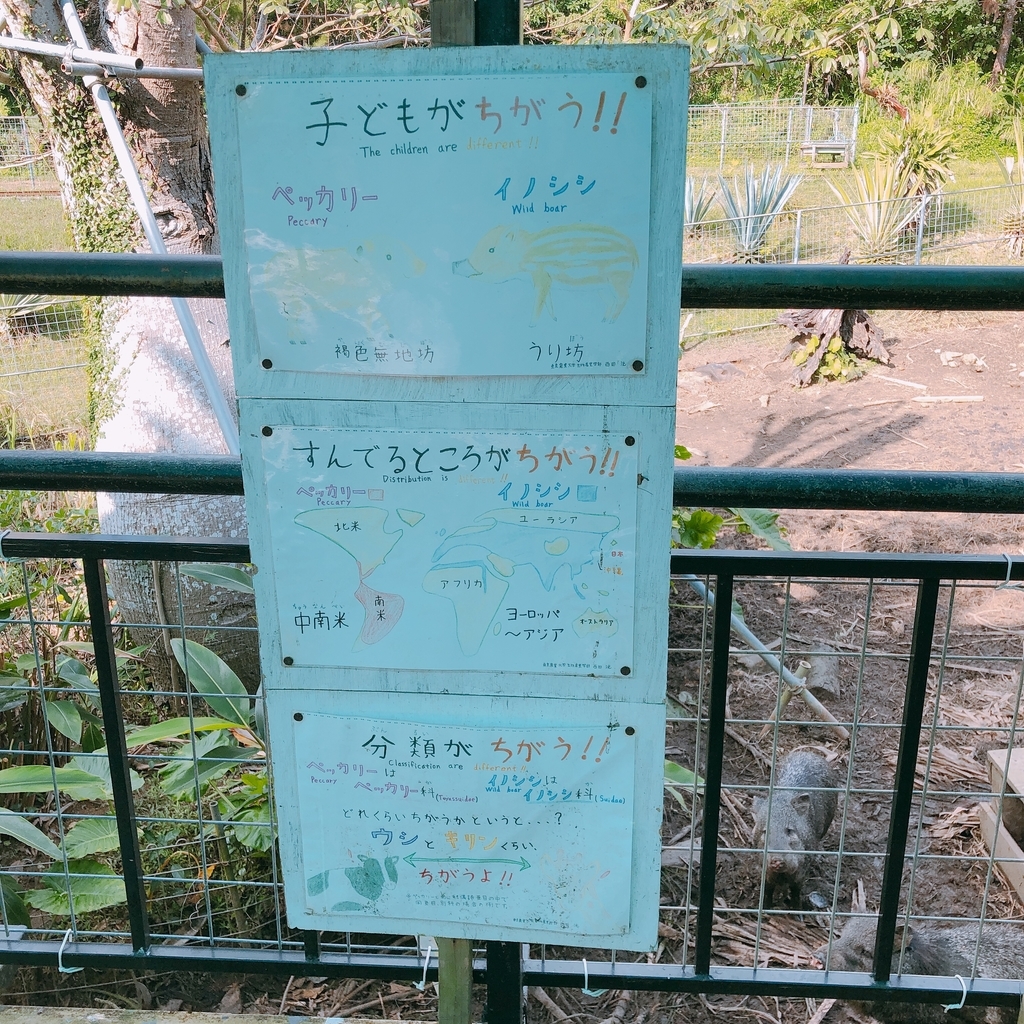 子どもがちがう!!
The children are different!!
ペッカリー
Peccary
イノシシ
Wild boar
褐色無地坊
うり坊
すんでるところがちがう!!
Distribution is different!!
ペッカリー
Peccary
イノシシ
Wild boar
北米
ユーラシア
日本
沖縄
アフリカ
南米
ちゅうなんべい
中南米
ヨーロッパ
～アジア
オーストラリア
分類がちがう!!
Classification are different!!
ペッカリーは
Peccary
ペッカリー科(Tayassuidae)
イノシシは
Wild boar
イノシシ科(Suidae)
どれくらいちがうかというと...?
ウシとキリンくらい
ちがうよ!!